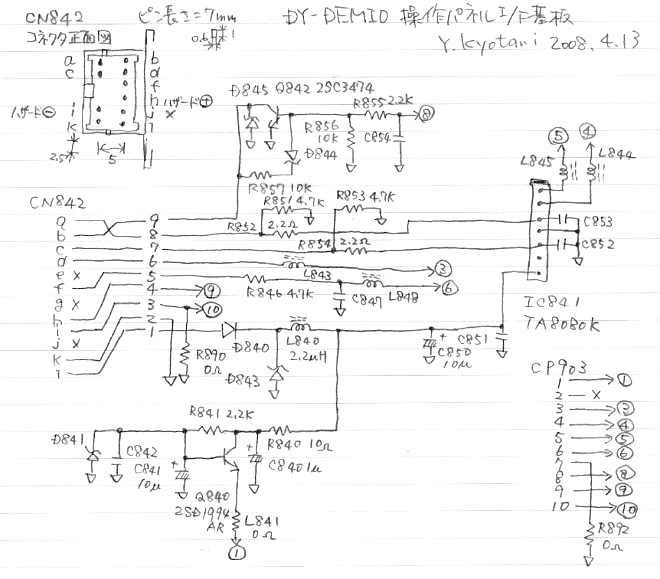 CN842
コネクタ正面図
ピン長さ=7mm
0.6
1
DY-DEMIO 操作パネルI/F基板
Y.Kyotani 2008.4.13
a
c
i
k
b
d
f
h
j
l
ハザード⊖
ハザード⊕
x
2.5
5
D845 Q842 2SC3474
R855 2.2K
⑧
R856
10K
C854
D844
R857 10K
⑤
④
L845
L844
CN842
R851 4.7K
R853 4.7K
R852
2.2Ω
R854
2.2Ω
C853
C852
a
b
c
d
e x
f
g x
h
i
j x
k
l
9
8
7
6
5
4
3
2
1
L843
③
R846 4.7K
C847
L848
⑥
⑨
⑩
IC841
TA8080K
R890
0Ω
D840
D843
L840
2.2μH
C850
10μ
C851
CP903
1
①
2
x
3
③
4
④
5
⑤
6
⑥
7
8
⑧
9
⑨
10
⑩
R892
0Ω
D841
C842
C841
10μ
R841 2.2K
R840 10Ω
C840 1μ
Q840
2SD1994
AR
L841
0Ω
①